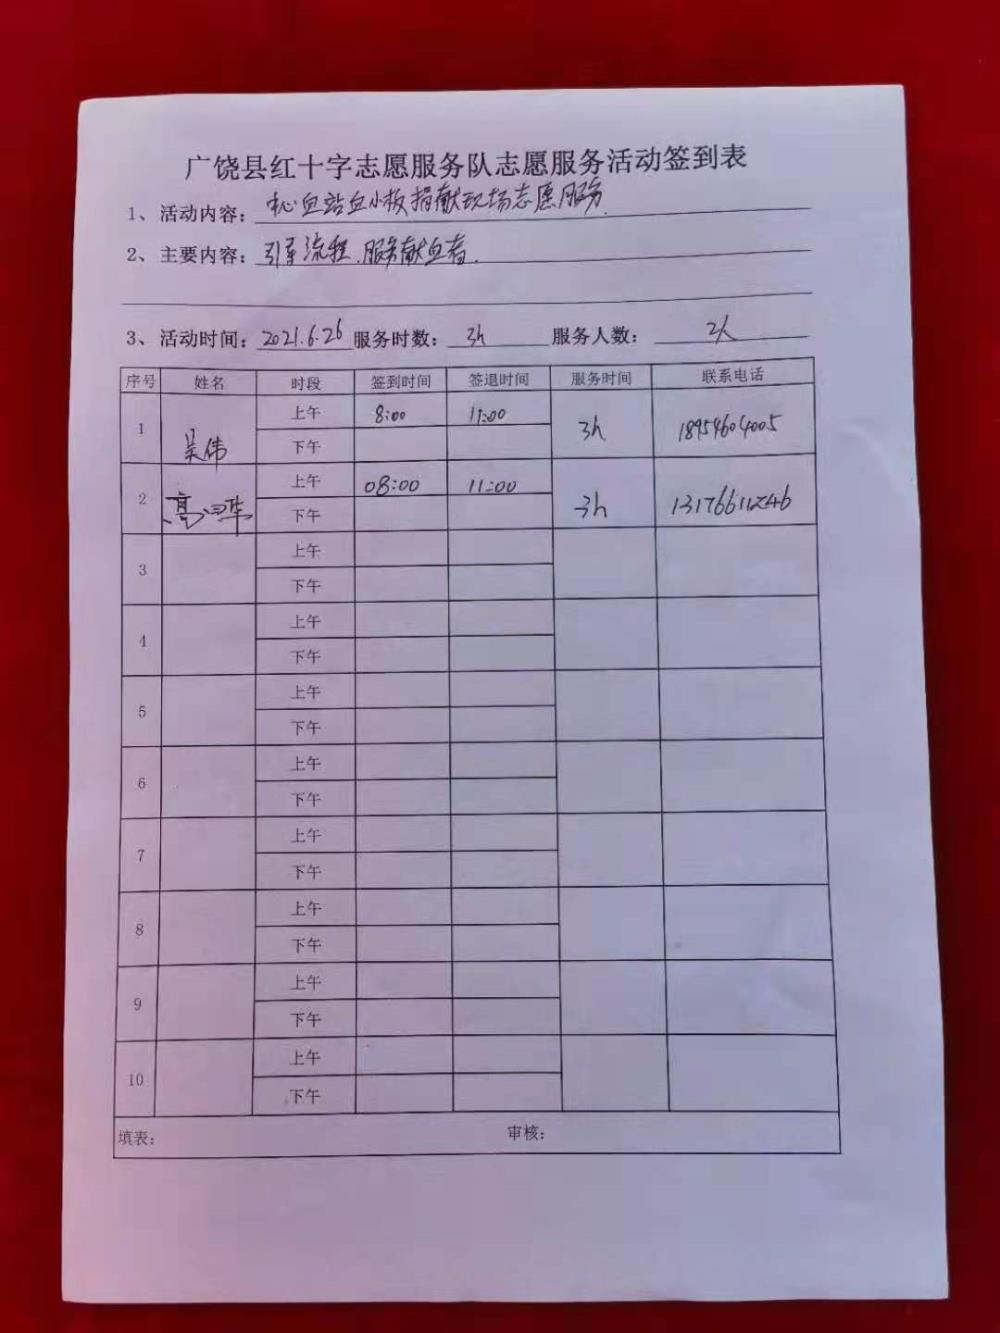 广饶县红十字志愿服务队志愿服务活动签到表
1、活动内容：中心血站血小板捐献现场志愿服务
2、主要内容：引导流程、服务献血者.
3、活动时间：2021.6.26 服务时数：3h 服务人数：2人
序号 姓名 时段 签到时间 签退时间 服务时间 联系电话
1 吴伟 上午 8:00 11:00 3h 18954604005
下午
2 上午 08:00 11:00 3h 13176611246
下午
3 上午
下午
4 上午
下午
5 上午
下午
6 上午
下午
7 上午
下午
8 上午
下午
9 上午
下午
10 上午
下午
填表： 审核：